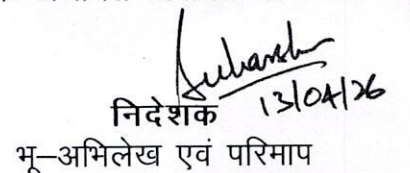 13/04/26
निदेशक
भू–अभिलेख एवं परिमाप